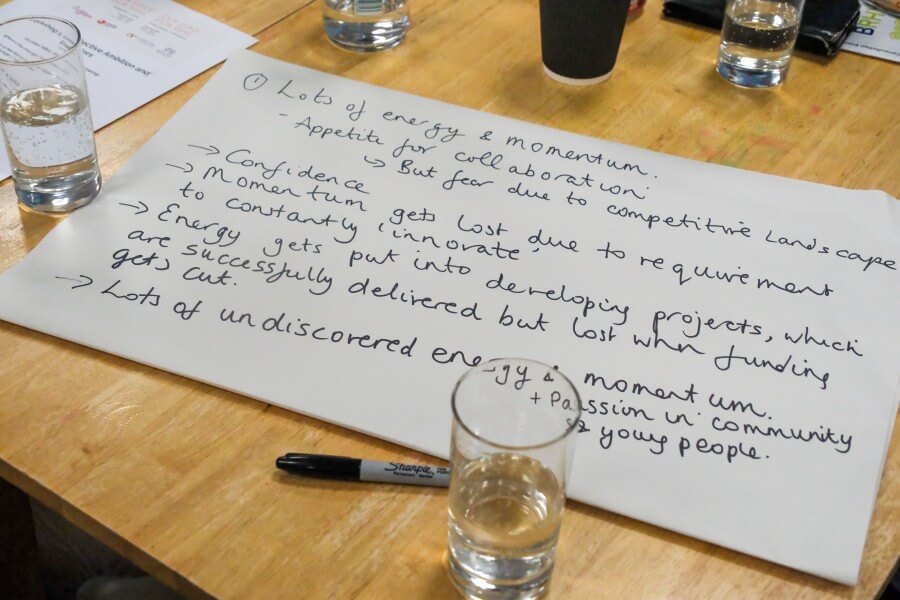 Workshop 1. C
ective Ambition and
① Lots of energy & momentum.
- Appetite for collaboration:
↳ But fear due to competitive landscape
→ Confidence
→ Momentum gets lost due to requirement
to constantly 'innovate'
→ Energy gets put into developing projects, which
are successfully delivered but lost when funding
gets cut.
→ Lots of undiscovered energy & momentum.
+ Passion in community
& young people.
Sharpie